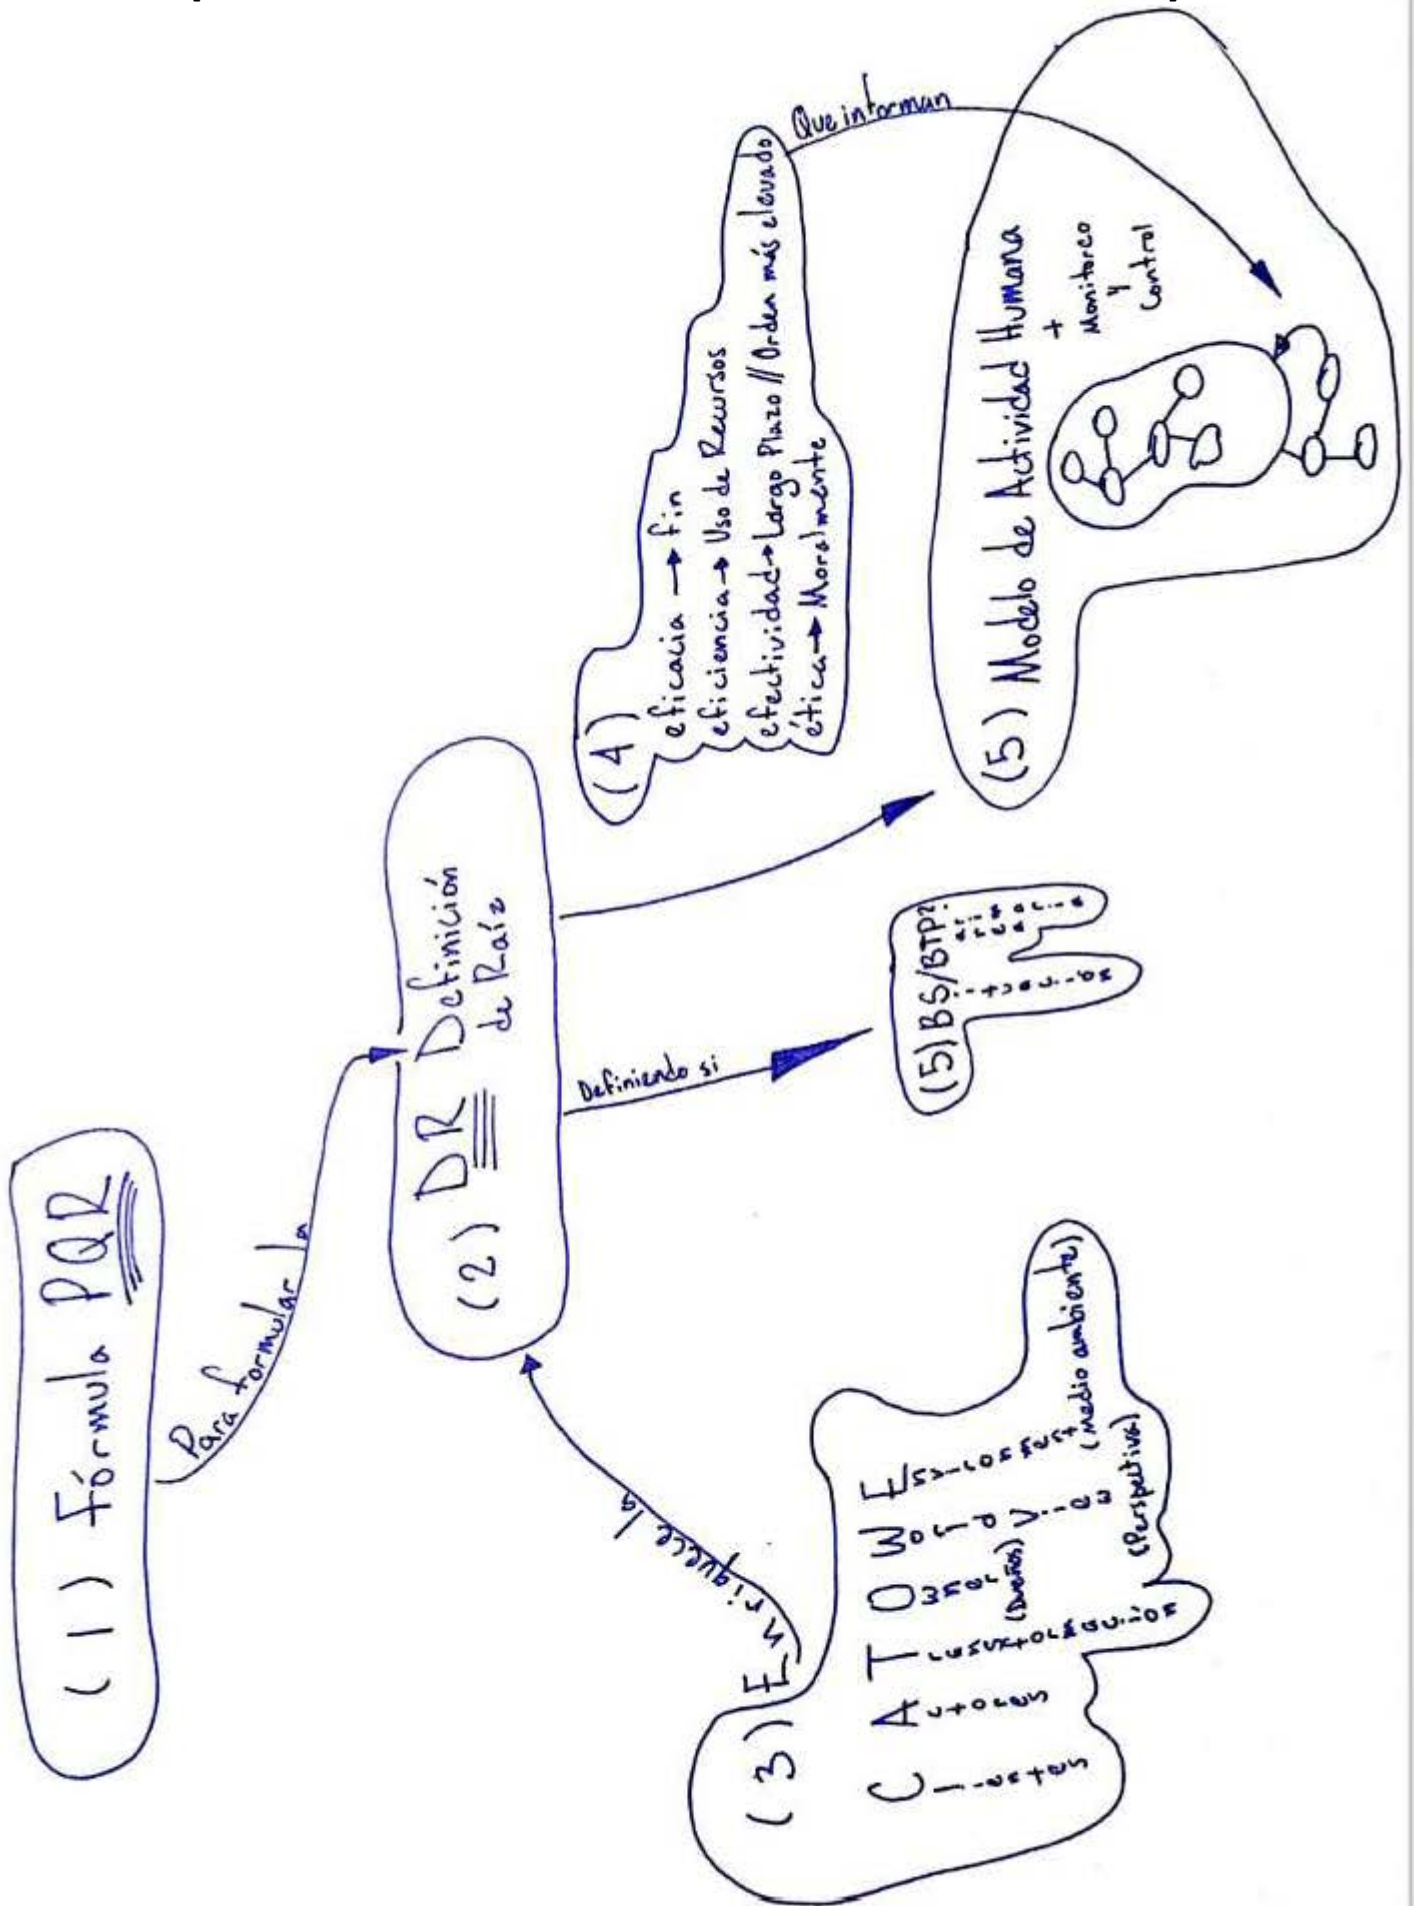 (1) Fórmula PQR
Para formular la
(2) DR Definición
de Raíz
(3) Enriquece la
C A T O W E
Clientes
Actores
Transformación
Owner
(Dueños)
World View
(Perspectiva)
Environment
(Medio ambiente)
Definiendo si
(5) BS/BTP?
(4)
eficacia → fin
eficiencia → Uso de Recursos
efectividad → Largo Plazo // Orden más elevado
ética → Moralmente
Que informan
(5) Modelo de Actividad Humana
+
Monitoreo
y
Control